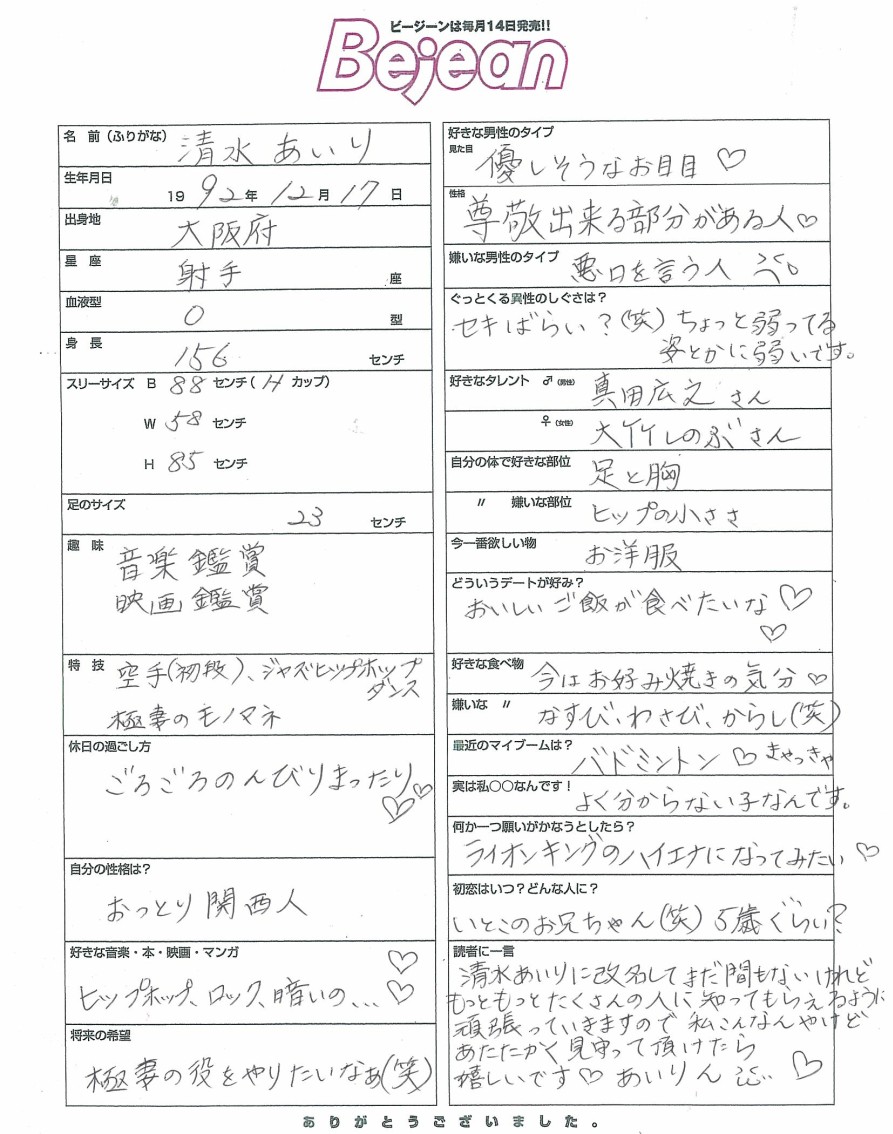 ビージーンは毎月14日発売!!
Bejean
名 前（ふりがな） 清水 あいり
生年月日
19 92 年 12 月 17 日
出身地 大阪府
星 座 射手 座
血液型 O 型
身 長 156 センチ
スリーサイズ B 88 センチ( H カップ)
W 58 センチ
H 85 センチ
足のサイズ 23 センチ
趣 味 音楽鑑賞
映画鑑賞
特 技 空手(初段)、ジャズヒップホップ
ダンス
極妻のモノマネ
休日の過ごし方
ごろごろのんびりまったり♡♡
自分の性格は？
おっとり関西人
好きな音楽・本・映画・マンガ
ヒップホップ、ロック、暗いの…♡♡
将来の希望
極妻の役をやりたいなぁ(笑)
好きな男性のタイプ
見た目 優しそうなお目目♡
性格 尊敬出来る部分がある人♡
嫌いな男性のタイプ 悪口を言う人
ぐっとくる異性のしぐさは？
セキばらい？(笑) ちょっと弱ってる
姿とかに弱いです。
好きなタレント ♂(男性) 真田広之さん
♀(女性) 大竹しのぶさん
自分の体で好きな部位 足と胸
〃 嫌いな部位 ヒップの小ささ
今一番欲しい物 お洋服
どういうデートが好み？
おいしいご飯が食べたいな♡
♡
好きな食べ物 今はお好み焼きの気分♡
嫌いな 〃 なすび、わさび、からし(笑)
最近のマイブームは？ バドミントン♡きゃっきゃ
実は私○○なんです！
よく分からない子なんです。
何か一つ願いがかなうとしたら？
ライオンキングのハイエナになってみたい♡
初恋はいつ？どんな人に？
いとこのお兄ちゃん(笑) 5歳ぐらい？
読者に一言
清水あいりに改名してまだ間もないけれど
もっともっとたくさんの人に知ってもらえるように
頑張っていきますので私こんなんやけど
あたたかく見守って頂けたら
嬉しいです♡ あいりん ♡
ありがとうございました。